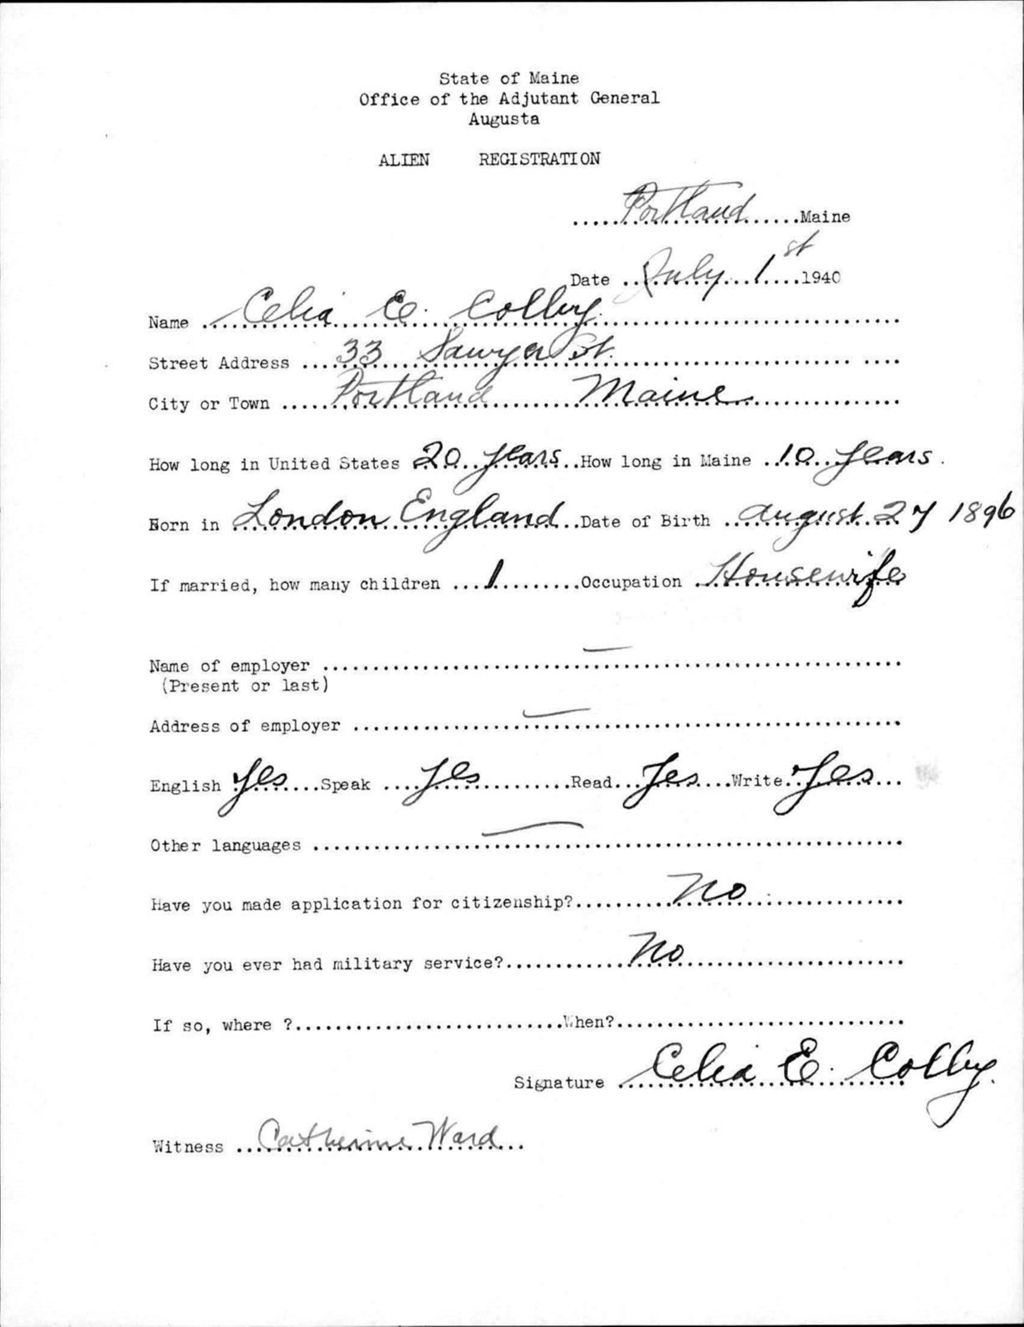 State of Maine
Office of the Adjutant General
Augusta
ALIEN REGISTRATION
Portland Maine
Date July 1st 1940
Name Celia E. Colby.
Street Address 33 Sawyer St.
City or Town Portland Maine
How long in United States 20 years How long in Maine 10 years.
Born in London England Date of Birth August 27 1896
If married, how many children 1 Occupation Housewife
Name of employer —
(Present or last)
Address of employer —
English Yes Speak Yes Read Yes Write Yes
Other languages —
Have you made application for citizenship? No
Have you ever had military service? No
If so, where ? When?
Signature Celia E. Colby.
Witness Catherine Ward